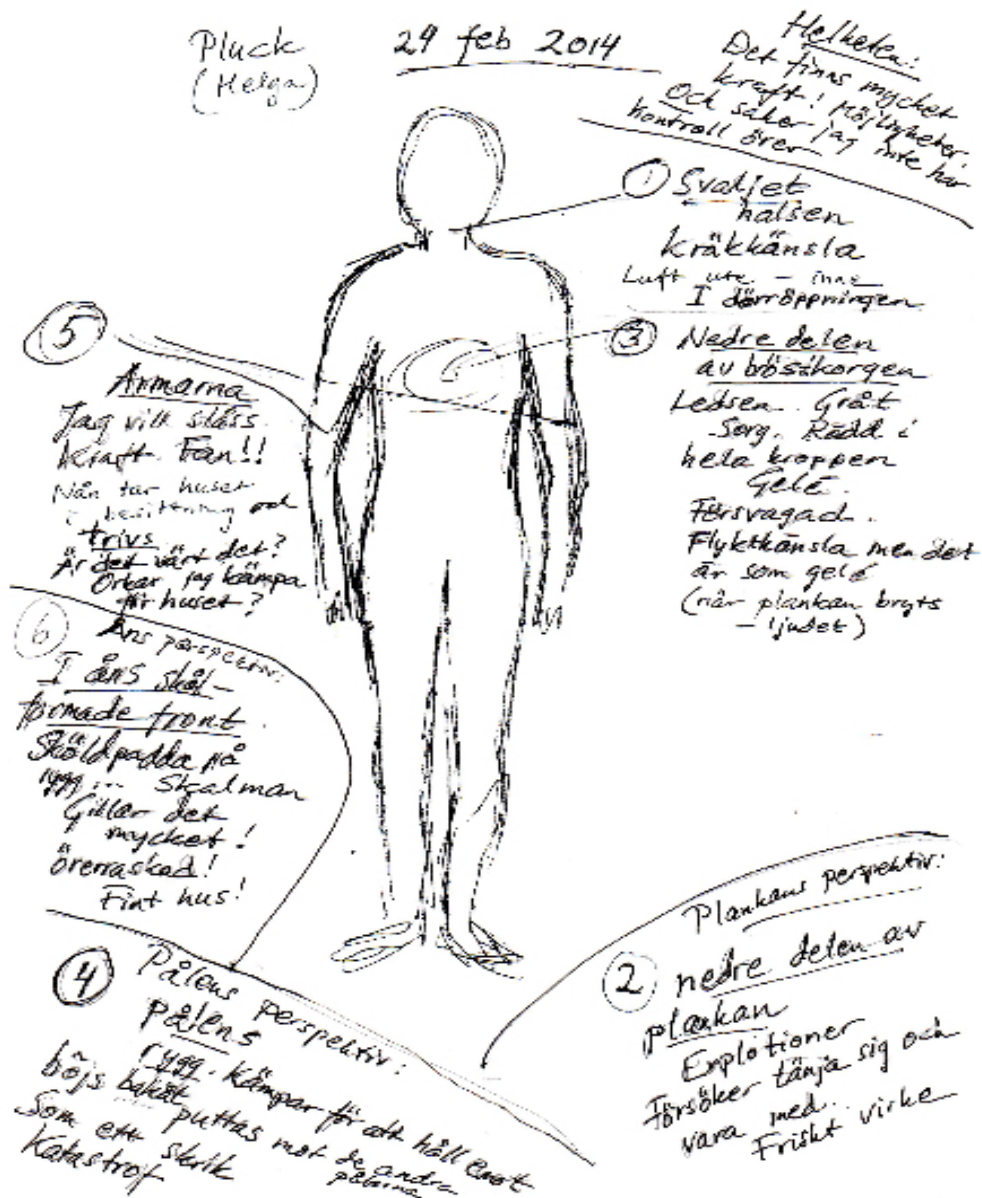 Pluck
(Helga)
29 feb 2014
Helheten:
Det finns mycket
kraft! Möjligheter.
Och saker jag inte har
kontroll över
1 Svaljet
halsen
kräkkänsla
Luft ute - inne
I dörröppningen
3 Nedre delen
av bröstkorgen
Ledsen. Gråt
Sorg. Rädd i
hela kroppen
Gelé.
Försvagad.
Flyktkänsla men det
är som gelé
(når plankan bryts
- ljudet)
5
Armarna
Jag vill slåss.
kraft. Fan!!
Nån tar huset
i besittning och
trivs
Är det värt det?
Orkar jag kämpa
för huset?
6 Åns perspektiv:
I åns skål-
formade front.
Sköldpadda på
rygg... Skalman
Gillar det
mycket!
överraskad!
Fint hus!
4 Pålens perspektiv:
Pålens
rygg. Kämpar för att håll emot
böjs bakåt puttas mot de andra
pålarna
Som ett skrik
Katastrof
Plankans perspektiv:
2 nedre delen av
plankan
Explotioner
Försöker tänja sig och
vara med.
Friskt virke